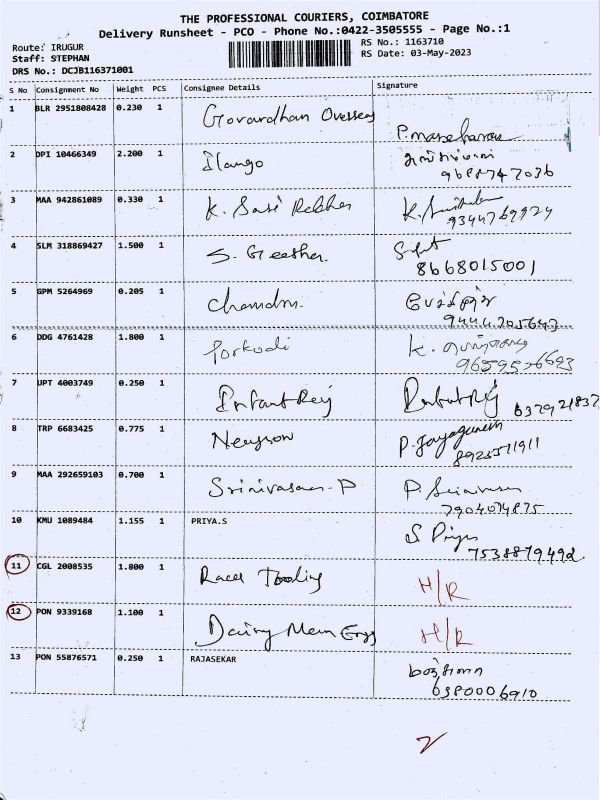 THE PROFESSIONAL COURIERS, COIMBATORE
Delivery Runsheet - PCO - Phone No.:0422-3505555 - Page No.:1
Route: IRUGUR
Staff: STEPHAN
DRS No.: DCJB116371001
RS No.: 1163710
RS Date: 03-May-2023
S No Consignment No Weight PCS Consignee Details Signature
1 BLR 2951808428 0.230 1 Govardhan Overseas
P. Manoharan
2 DPI 10466349 2.200 1 Ilango
9688747036
3 MAA 942861089 0.330 1 K. Sasi Rekha K.
9344769924
4 SLM 318869427 1.500 1 S. Geetha.
8668015001
5 GPM 5264969 0.205 1 Chandra.
9444205643
6 DDG 4761428 1.800 1 Porkodi K.
7 UPT 4003749 0.250 1 Infant Raj
8 TRP 6683425 0.775 1 Newson P. Jayaganesh
9 MAA 292659103 0.700 1 Srinivasan.P P. Srinivasan
7904074875
10 KMU 1089484 1.155 1 PRIYA.S
S Priya
11 CGL 2008535 1.800 1 Race Tooling H/R
12 PON 9339168 1.100 1 Dairy Men Engg H/R
13 PON 55876571 0.250 1 RAJASEKAR
6380006910
2